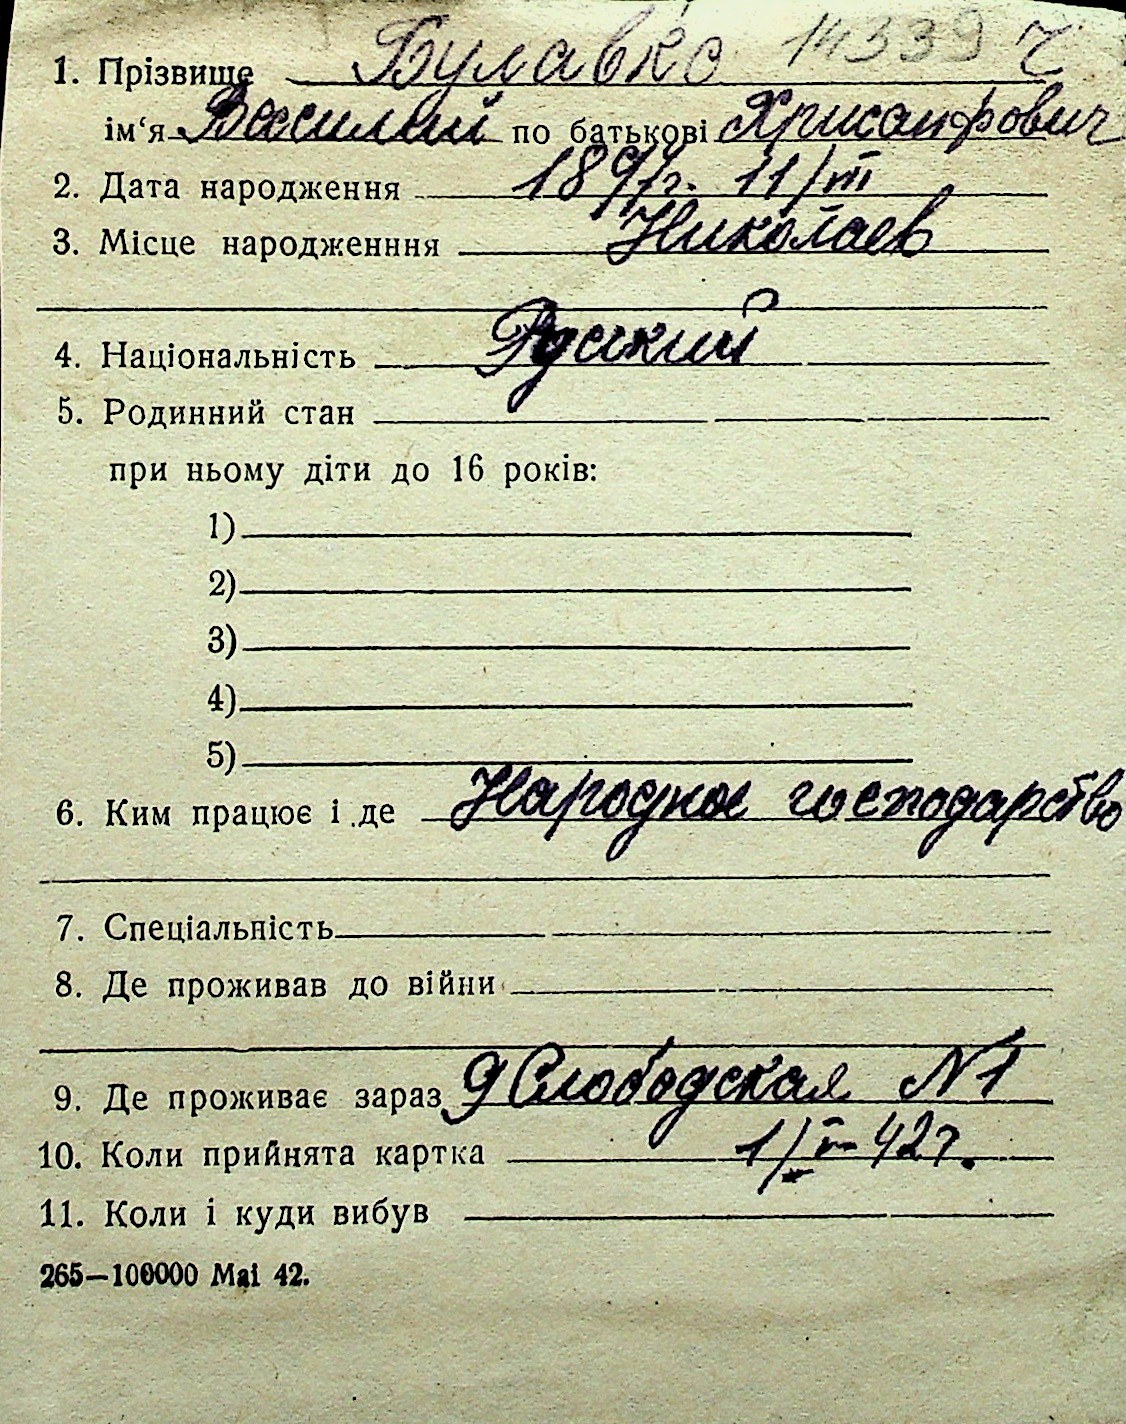 14339 ч
1. Прізвище Булавко
ім‘я Василий по батькові Хрисанфович
2. Дата народження 11/III
3. Місце народженння Николаев
4. Національність Русский
5. Родинний стан
при ньому діти до 16 років:
1)
2)
3)
4)
5)
6. Ким працює і де Народное господарство
7. Спеціальність
8. Де проживав до війни
9. Де проживає зараз 9 Слободская №1
10. Коли прийнята картка 42г.
11. Коли і куди вибув
265—100000 Mai 42.